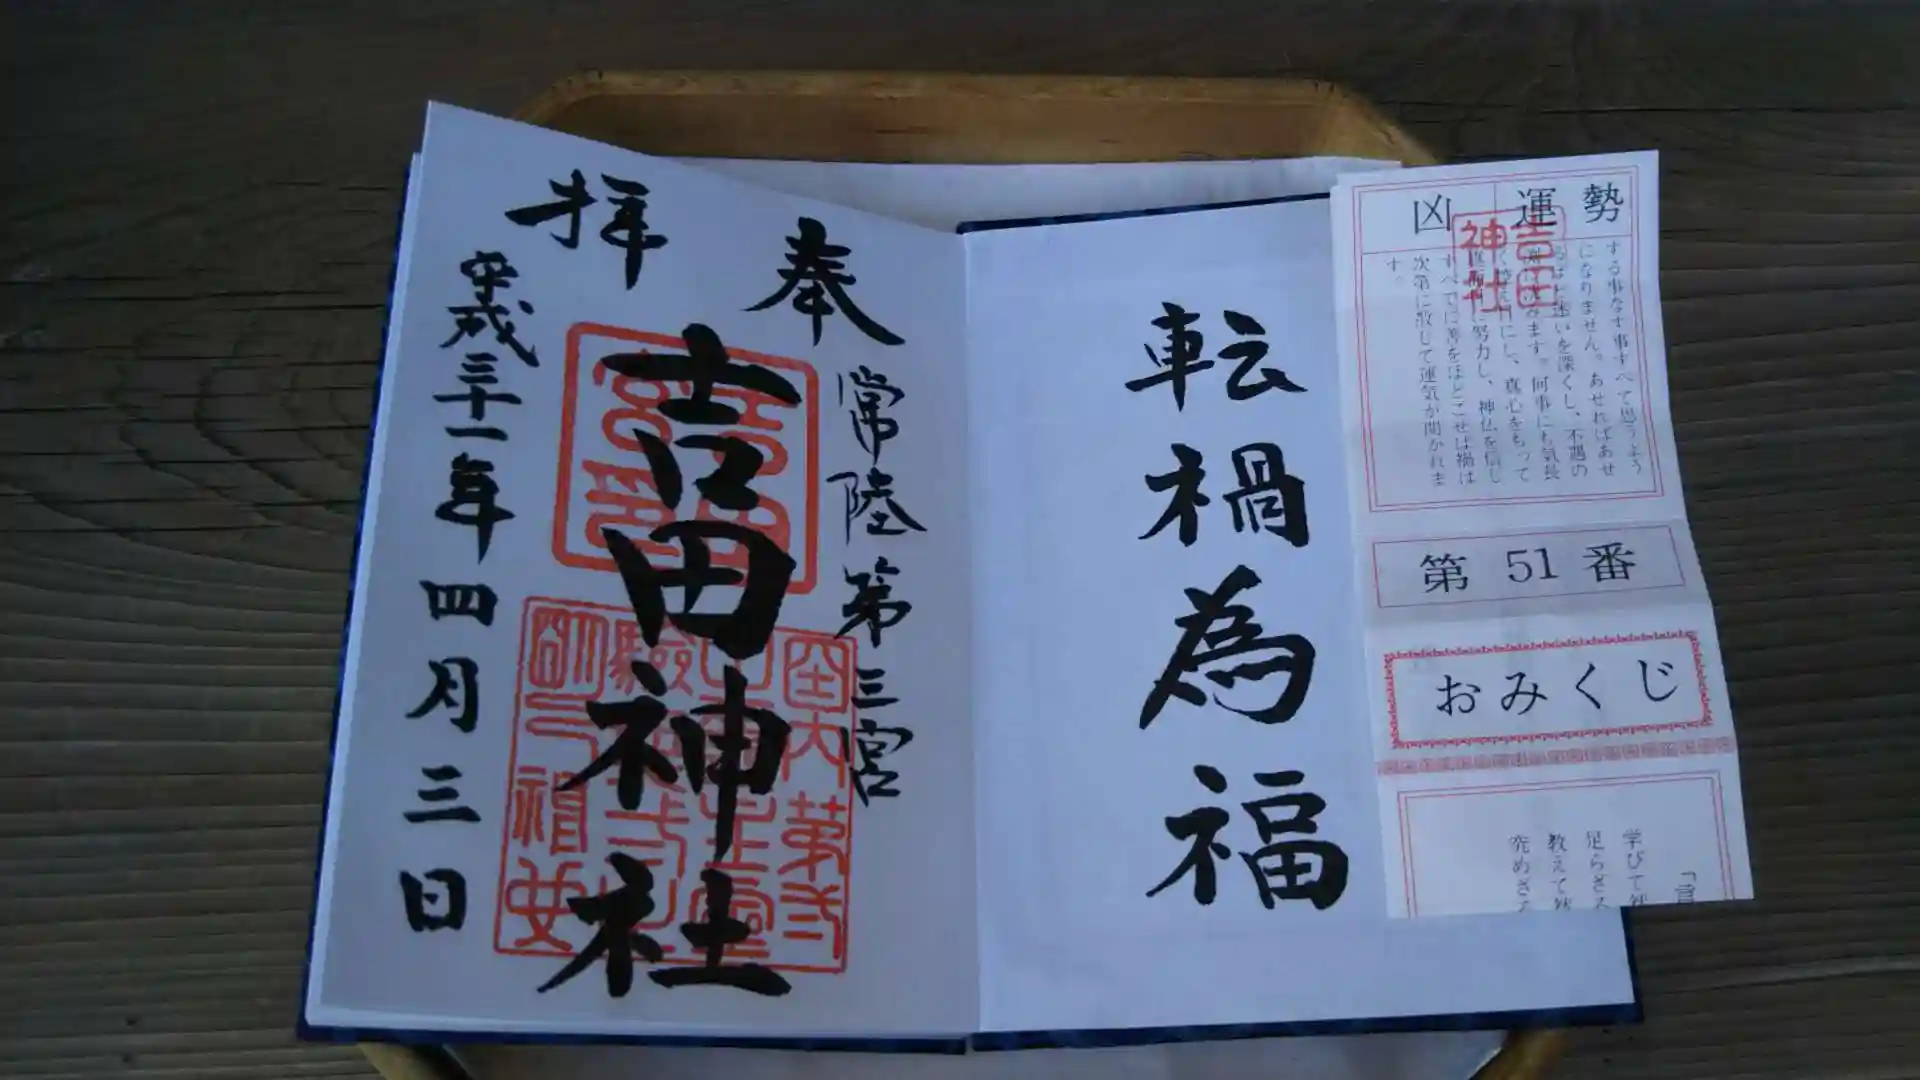 奉拝
常陸第三宮
吉田神社
平成三十一年四月三日
転禍為福
運勢 凶
吉田神社
する事なす事すべて思うよう
になりません。あせればあせ
るほど迷いを深くし、不遇の
ます。何事にも気長
にし、真心をもって
努力し、神仏を信じ
すべてに善をほどこせば禍は
次第に散じて運気が開かれま
す。
第51番
おみくじ
学びて
足らざる
教えて
究めざる